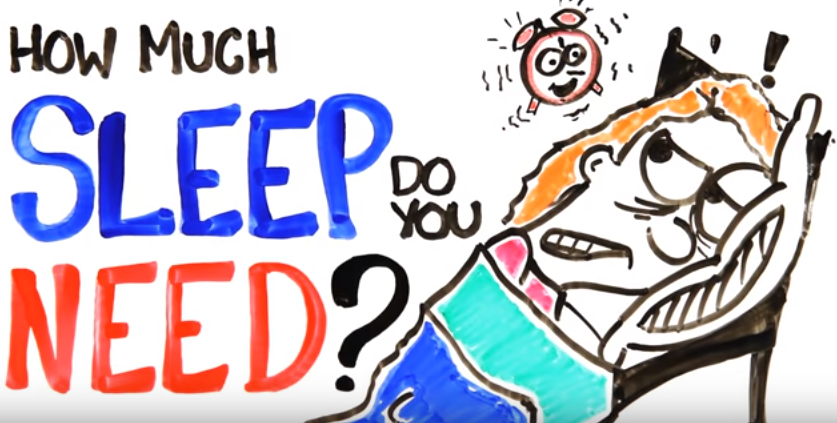 HOW MUCH
SLEEP DO YOU
NEED?
!